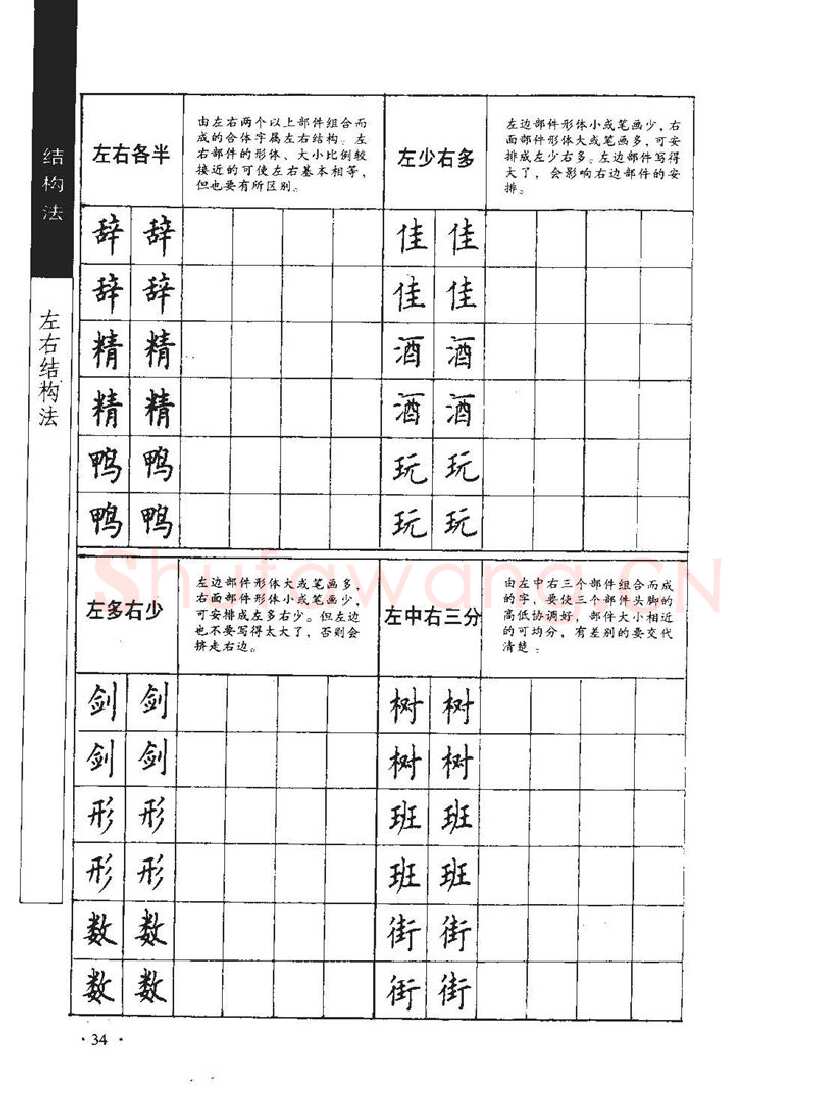 结构法
左右结构法
左右各半
由左右两个以上部件组合而
成的合体字属左右结构。左
右部件的形体、大小比例较
接近的可使左右基本相等，
但也要有所区别。
左少右多
左边部件形体小或笔画少，右
面部件形体大或笔画多，可安
排成左少右多。左边部件写得
大了，会影响右边部件的安
排。
辞 辞 佳 佳
辞 辞 佳 佳
精 精 酒 酒
精 精 酒 酒
鸭 鸭 玩 玩
鸭 鸭 玩 玩
左多右少
左边部件形体大或笔画多，
右面部件形体小或笔画少，
可安排成左多右少。但左边
也不要写得太大了，否则会
挤走右边。
左中右三分
由左中右三个部件组合而成
的字，要使三个部件头脚的
高低协调好，部件大小相近
的可均分。有差别的要交代
清楚：
剑 剑 树 树
剑 剑 树 树
形 形 班 班
形 形 班 班
数 数 街 街
数 数 街 街
Shufawang.CN
·34·